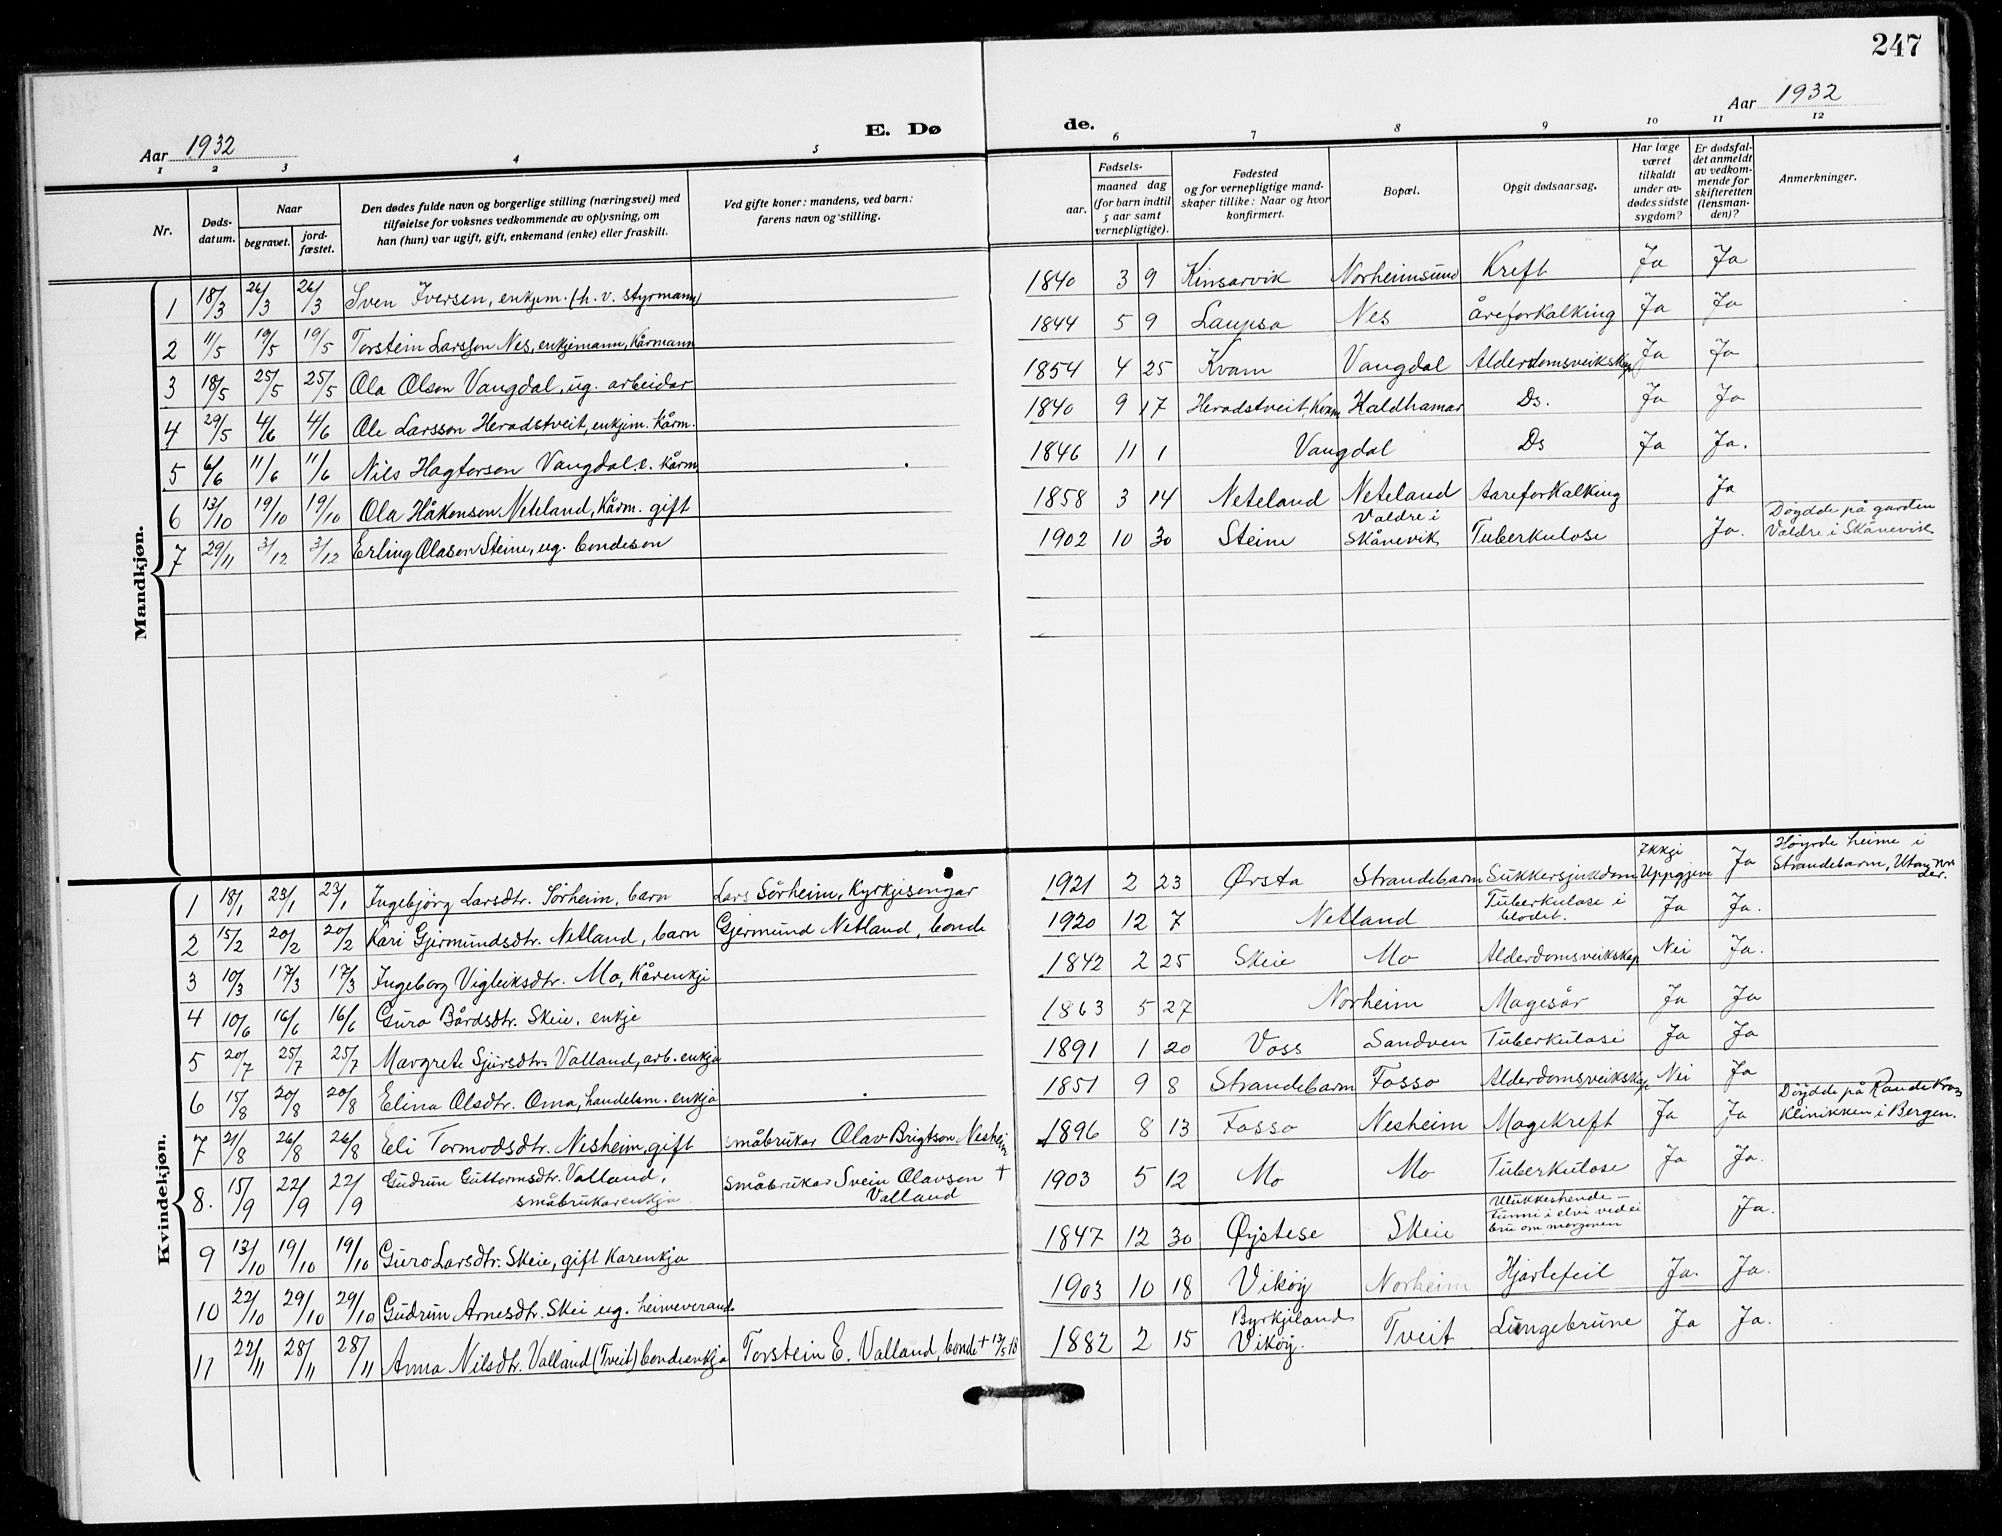 247
Aar 1932
E. Dø
de.
Aar 1932
1 2 3 4 5 6 7 8 9 10 11 12
Nr.
Døds-
datum.
Naar
begravet.
jord-
fæstet.
Den dødes fulde navn og borgerlige stilling (næringsvei) med
tilføielse for voksnes vedkommende av oplysning, om
han (hun) var ugift, gift, enkemand (enke) eller fraskilt.
Ved gifte koner: mandens, ved barn:
farens navn og stilling.
Fødsels-
aar.
maaned dag
(for barn indtil
5 aar samt
vernepligtige).
Fødested
og for vernepligtige mand-
skaper tillike: Naar og hvor
konfirmert.
Bopæl.
Opgit dødsaarsag.
Har læge
været
tilkaldt
under av-
dødes sidste
sygdom?
Er dødsfal-
det anmeldt
av vedkom-
mende for
skifteretten
(lensman-
den)?
Anmerkninger.
Mandkjøn.
1 18/3 26/3 26/3 Sven Iversen, enkjem. (h. v. styrmann) 1840 3 9 Kinsarvik Norheimsund Kreft Ja Ja
2 11/5 19/5 19/5 Torstein Larsson Nes, enkjemann, Kårmann 1844 5 9 Laupsa Nes åreforkalking Ja Ja
3 18/5 25/5 25/5 Ola Olson Vangdal, ug. arbeidar 1854 4 25 Kvam Vangdal Alderdomsveikskap Ja Ja
4 29/5 4/6 4/6 Ole Larsson Heradstveit, enkjem. Kårm. 1840 9 17 Heradstveit, Kvam Haldhamar Ds. Ja Ja
5 6/6 11/6 11/6 Nils Hagtorson Vangdal. e. kårm 1846 11 1 Vangdal Ds Ja Ja.
6 13/10 19/10 19/10 Ola Håkonson Neteland, Kårm. gift 1858 3 14 Neteland Neteland Aareforkalking Ja
7 29/11 3/12 3/12 Erling Olason Steine, ug. bondeson 1902 10 30 Steine Valdre i
Skånevik Tuberkulose Ja. Døydde på garden
Valdre i Skånevik
Kvindekjøn.
1 18/1 23/1 23/1 Ingebjörg Larsdtr. Sörheim, barn Lars Sörheim, Kyrkjesongar 1921 2 23 Ørsta Strandebarm Sukkersjukdom Ikkji
Uppgjeve Ja Høyrde heime i
Strandebarm, Utan
2 15/2 20/2 20/2 Kari Gjermundsdtr. Netland, barn Gjermund Netland, bonde 1920 12 7 Netland Tuberkulose i
blodet. Ja Ja.
3 10/3 17/3 17/3 Ingeborg Vigleiksdtr. Mo, Kårenkje 1842 2 25 Skeie Mo Alderdomsveikskap Nei Ja.
4 10/6 16/6 16/6 Guro Bårdsdtr. Skeie, enkje 1863 5 27 Norheim Magesår Ja Ja
5 20/7 25/7 25/7 Margrete Sjursdtr. Valland, arb. enkja 1891 1 20 Voss Sandven Tuberkulose Ja Ja
6 15/8 20/8 20/8 Elina Olsdtr. Oma, handelsm. enkja 1851 9 8 Strandebarm Fosso Alderdomsveikskap Nei Ja
7 21/8 26/8 26/8 Eli Tormodsdtr. Nesheim, gift småbrukar Olav Brigtson Nesheim 1896 8 13 Fosso Nesheim Magekreft Ja Ja Døydde på Raude Kross
Klinikken i Bergen.
8. 15/9 22/9 22/9 Gudrun Guttormsdtr. Valland,
småbrukarenkja småbrukar Svein Olavson +
Valland 1903 5 12 Mo Mo Tuberkulose Ja Ja.
9 13/10 19/10 19/10 Guro Larsdtr. Skeie, gift Karenkja 1847 12 30 Øystese Skeie Ulukkeshende —
Funni i elvi ved ei
bru om morgonen Ja.
10 22/10 29/10 29/10 Gudrun Arnesdtr. Skei ug. heimeverande 1903 10 18 Vikøy Norheim Hjartefeil Ja. Ja.
11 22/11 28/11 28/11 Anna Nilsdtr. Valland (Tveit) bondeenkja Torstein E. Valland, bonde + 13/5 18 1882 2 15 Byrkjeland
Vikøy. Tveit Lungebrune Ja Ja.